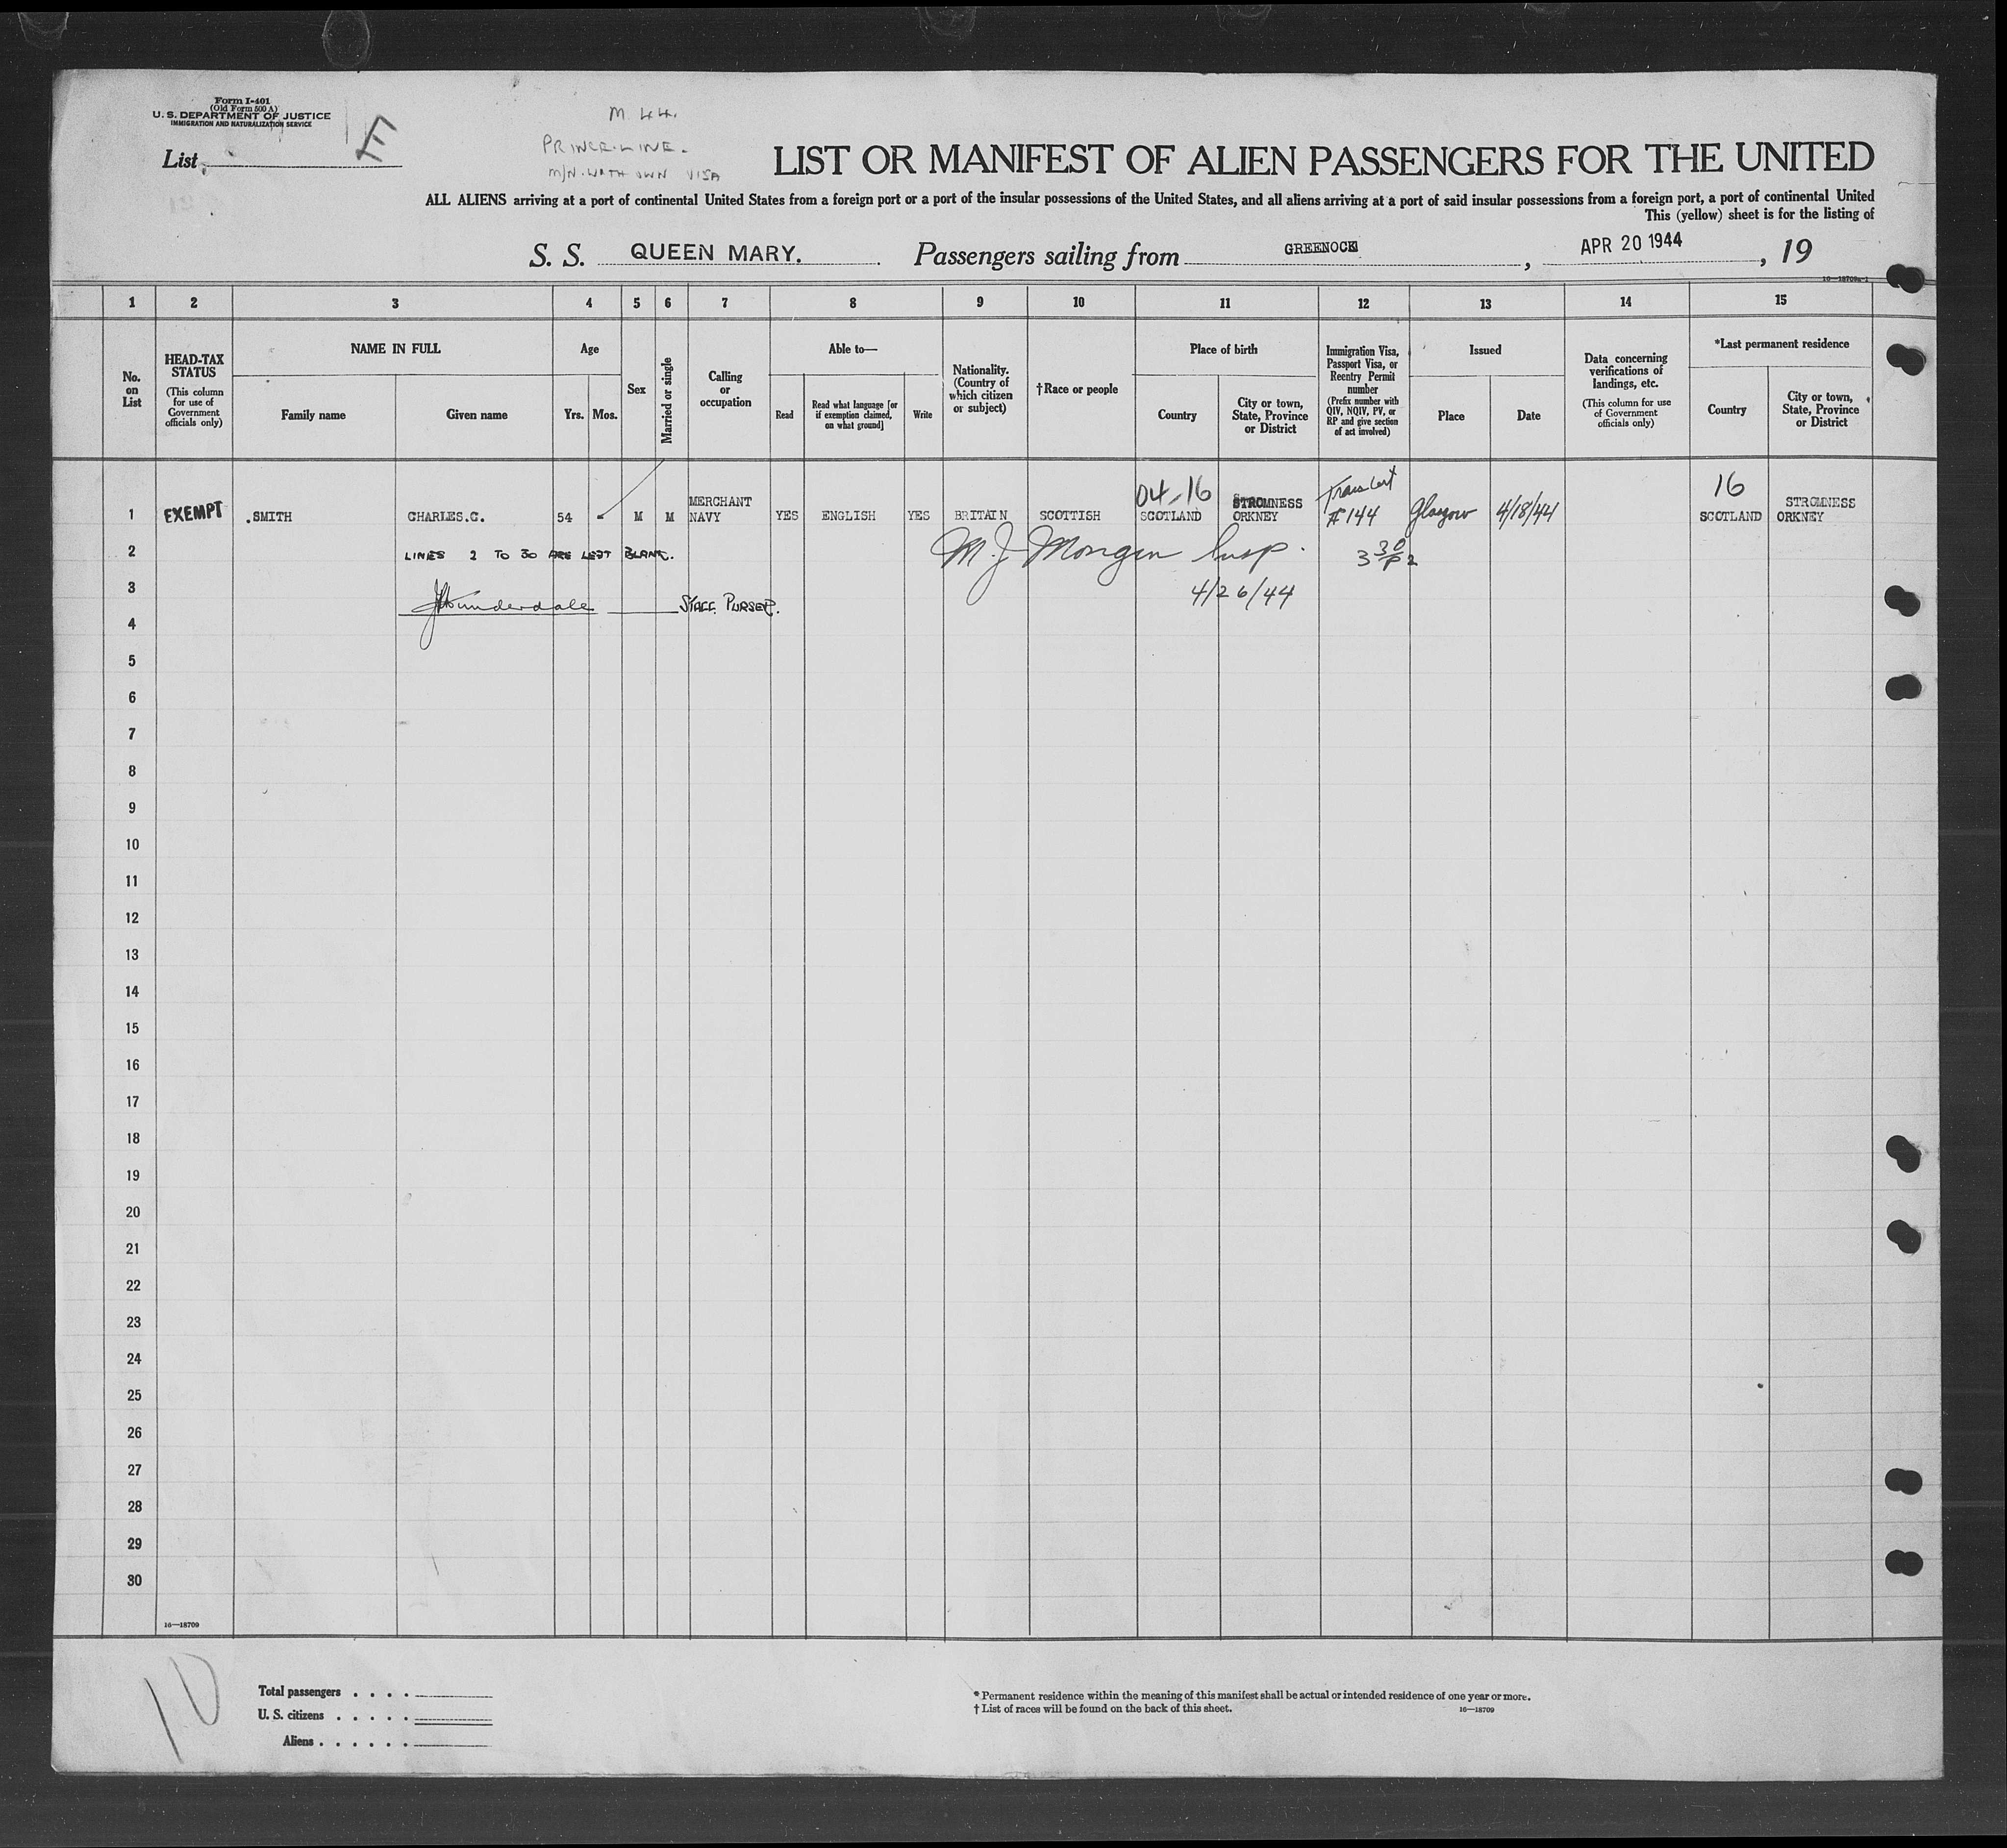 Form I-401
(Old Form 500 A)
U. S. DEPARTMENT OF JUSTICE
IMMIGRATION AND NATURALIZATION SERVICE
List
E
M. 44.
PRINCE-LINE.
M/N. WITH OWN VISA
LIST OR MANIFEST OF ALIEN PASSENGERS FOR THE UNITED
ALL ALIENS arriving at a port of continental United States from a foreign port or a port of the insular possessions of the United States, and all aliens arriving at a port of said insular possessions from a foreign port, a port of continental United
This (yellow) sheet is for the listing of
S. S. QUEEN MARY. Passengers sailing from GREENOCK, APR 20 1944, 19
16—18709a-1
1 2 3 4 5 6 7 8 9 10 11 12 13 14 15
No. on List
HEAD-TAX STATUS
(This column for use of Government officials only)
NAME IN FULL
Family name
Given name
Age
Yrs. Mos.
Sex
Married or single
Calling or occupation
Able to—
Read
Read what language [or if exemption claimed, on what ground]
Write
Nationality. (Country of which citizen or subject)
†Race or people
Place of birth
Country
City or town, State, Province or District
Immigration Visa, Passport Visa, or Reentry Permit number
(Prefix number with QIV, NQIV, PV, or RP and give section of act involved)
Issued
Place
Date
Data concerning verifications of landings, etc.
(This column for use of Government officials only)
*Last permanent residence
Country
City or town, State, Province or District
MERCHANT 04-16 STROMNESS Trans Cert 16 STROMNESS
1 EXEMPT .SMITH CHARLES.C. 54 - M M NAVY YES ENGLISH YES BRITAIN SCOTTISH SCOTLAND ORKNEY #144 Glasgow 4/18/44 SCOTLAND ORKNEY
2 LINES 2 TO 30 ARE LEFT BLANK. M. J. Mongin Insp. 3 30/P 2
3 STAFF PURSER. 4/26/44
4
5
6
7
8
9
10
11
12
13
14
15
16
17
18
19
20
21
22
23
24
25
26
27
28
29
30
16—18709
10
Total passengers . . . .
U. S. citizens . . . . .
Aliens . . . . . .
* Permanent residence within the meaning of this manifest shall be actual or intended residence of one year or more.
† List of races will be found on the back of this sheet.
16—18709